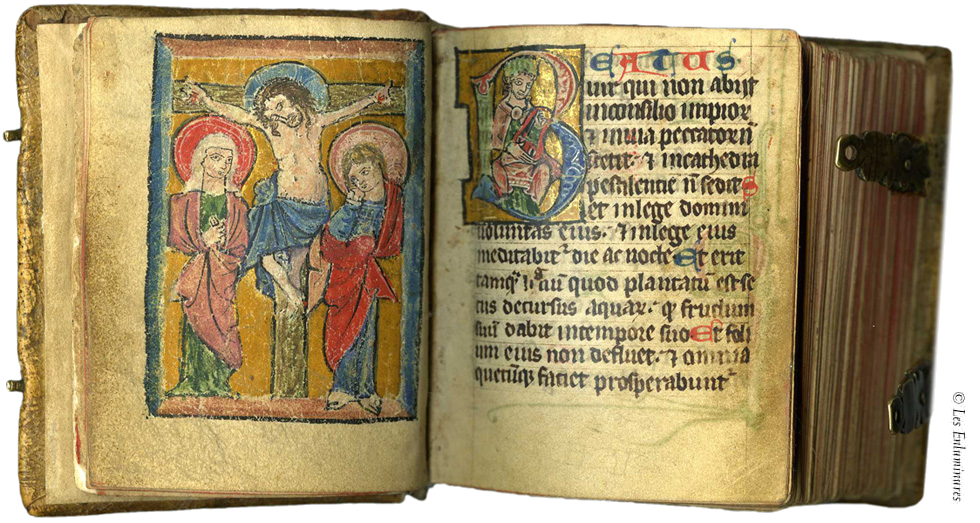 BEATUS.
uir qui non abiit
inconsilio impior
& inuia peccatorū
stetit. & incathedra
pestilentie n̄ sedit S
et inlege domini
uoluntas eius. & inlege eius
meditabit᷑ die ac nocte Et erit
tamq̄ lignū quod plantatū est se
cus decursus aquar. q̄ fructum
suū dabit intempore suo Et foli
um eius non defluet. & omnia
quecūq; faciet prosperabunt᷑
© Les Enluminures